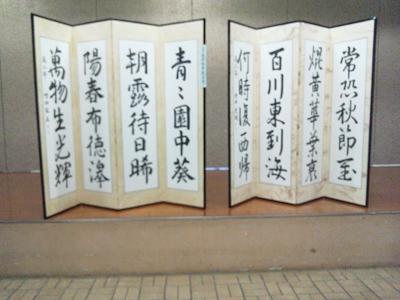 青々園中葵
朝露待日晞
陽春布德澤
萬物生光輝
常恐秋節至
焜黃華葉衰
百川東到海
何時復西歸